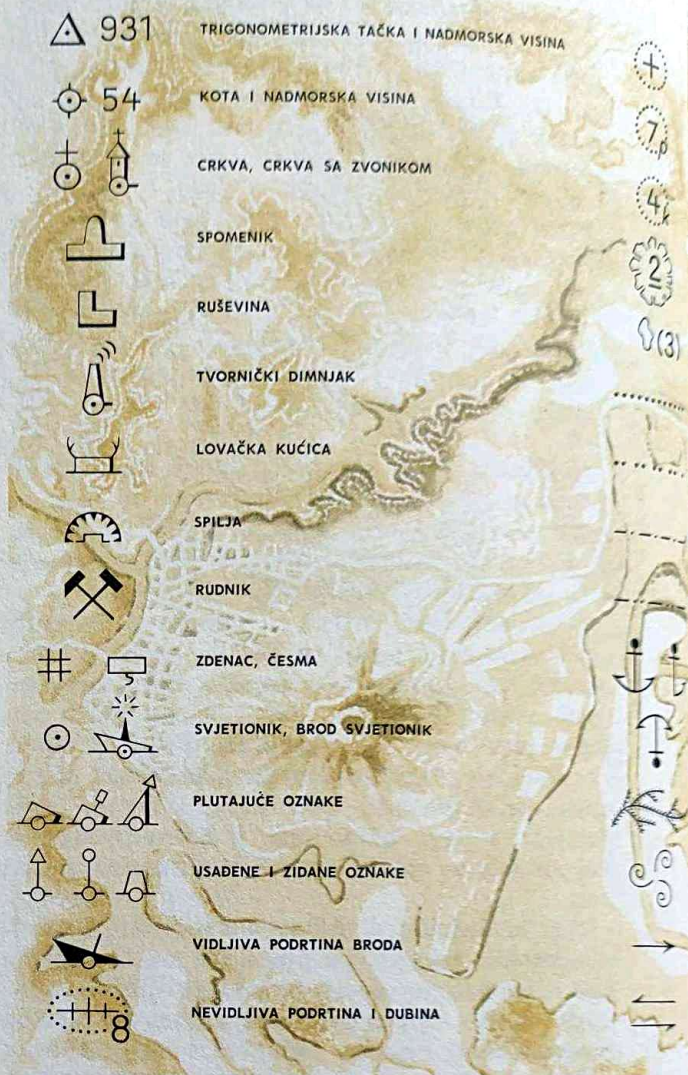 931 TRIGONOMETRIJSKA TAČKA I NADMORSKA VISINA
54 KOTA I NADMORSKA VISINA
CRKVA, CRKVA SA ZVONIKOM
SPOMENIK
RUŠEVINA
TVORNIČKI DIMNJAK
LOVAČKA KUĆICA
SPILJA
RUDNIK
ZDENAC, ČESMA
SVJETIONIK, BROD SVJETIONIK
PLUTAJUĆE OZNAKE
USAĐENE I ZIDANE OZNAKE
VIDLJIVA PODRTINA BRODA
8 NEVIDLJIVA PODRTINA I DUBINA
7p
4k
2
(3)